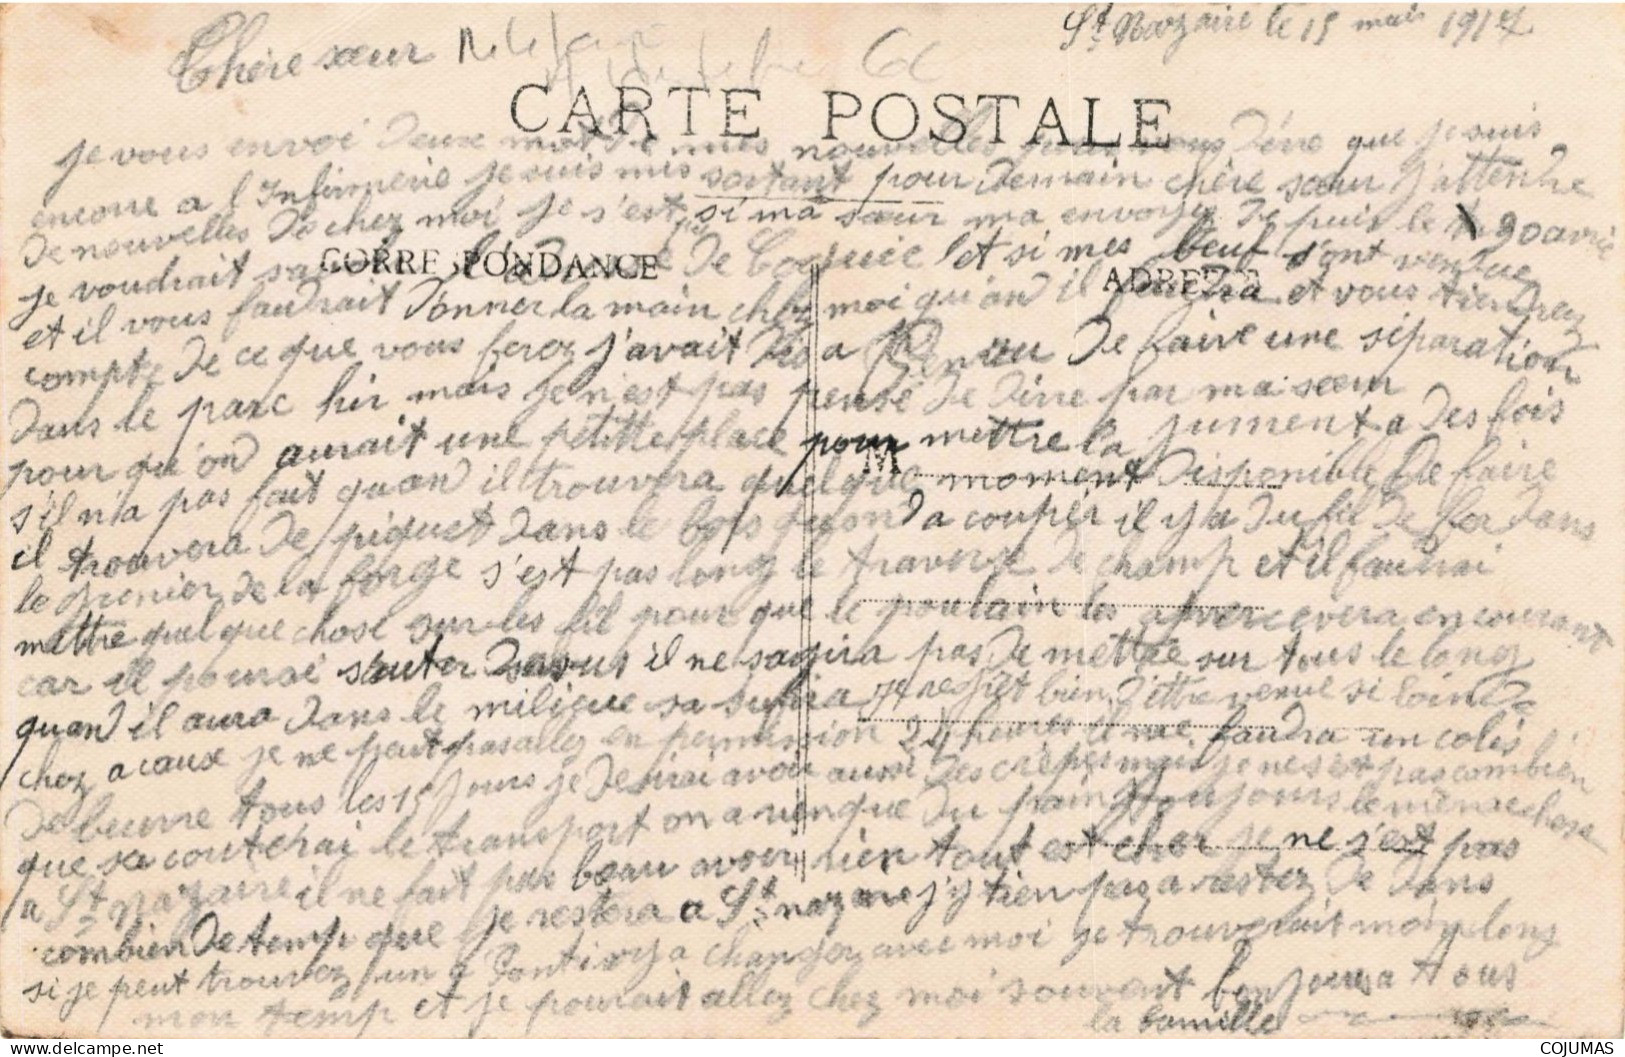 St Nazaire le 15 mai 1917
Chère sœur
CARTE POSTALE
je vous envoi deux mot de mes nouvelles pour vous dire que je suis
encore a l'Infirmerie je suis mis sortant pour demain chère sœur j'attendre
de nouvelles de chez moi je s'est pas si ma sœur ma envoyez depuis le 30 avril
je voudrait sa de Coquice et si mes beuf sont vendue
CORRESPONDANCE
ADRESSE
et il vous faudrait donner la main chez moi qu'an il faudra et vous tiendrez
compte de ce que vous ferez j'avait dis a de faire une séparation
dans le parc hir mais je n'est pas pensé de dire par ma sœur
pour qu'on aurait une petitte place pour mettre la jument a des fois
M
s'il n'a pas fait quan il trouvera quelque moment disponible de faire
il trouvera de piquet dans le bois quon da coupér il y a du fil de fer dans
le grenier de la forge s'est pas long le traverse de champ et il faudrai
mettre quelque chose sur les fil pour que le poulain les appercevera en courant
car il pourai sauter dessus il ne sagira pas de mettre sur tous le long
quand il aura dans le milieue sa sufira je regret bien d'ittre venue si loin de
chez a cause je ne peut pas allez en permission 24 heures il me faudra un colis
de beurre tous les 15 jours je desirai avoir aussi des crèpes mais je ne s'est pas combien
que sa couterai le transport on a rien que du pain toujours le même chose
a St nazaire il ne fait pas beau avoir rien tout est cher je ne s'est pas
combien de temp que je restera a St nazaire j'y tien pas a restez de dans
si je peut trouvez un a Pontivy a changez avec moi je trouverait moin long
mon temp et je pourait allez chez moi souvent bonjour a tous
la famille
COJUMAS